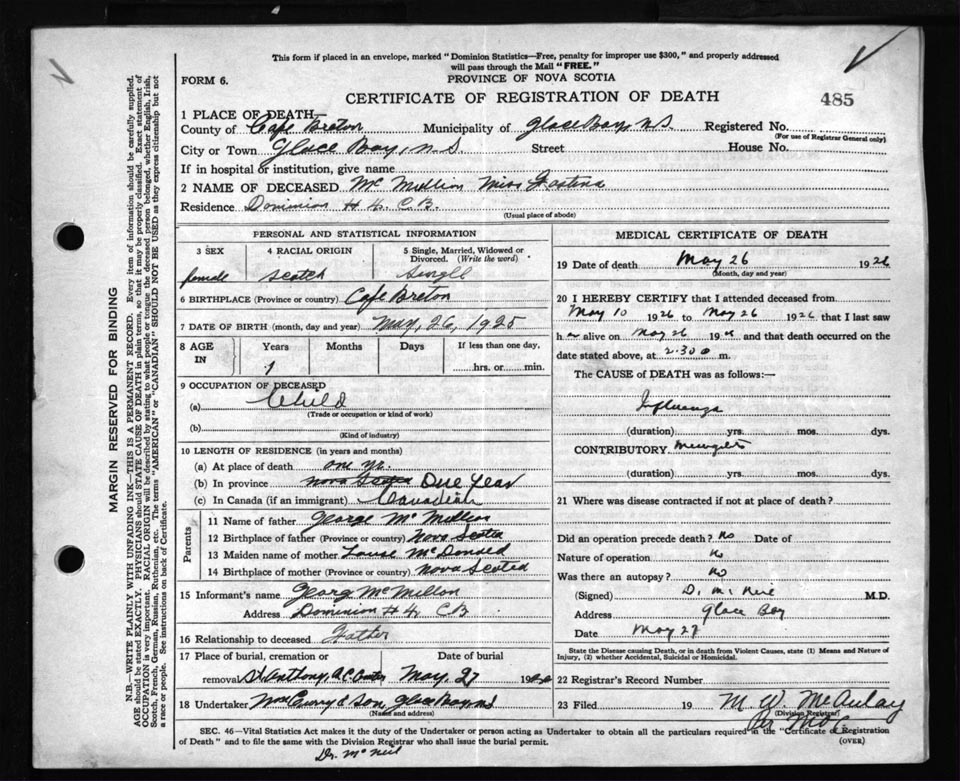 This form if placed in an envelope, marked "Dominion Statistics—Free, penalty for improper use $300," and properly addressed
will pass through the Mail "FREE."
FORM 6.
PROVINCE OF NOVA SCOTIA
CERTIFICATE OF REGISTRATION OF DEATH
485
1 PLACE OF DEATH—
County of Cape Breton Municipality of Glace Bay, N.S. Registered No.
(For use of Registrar General only)
City or Town Glace Bay, N.S. Street House No.
If in hospital or institution, give name
2 NAME OF DECEASED Mc Mullin Miss
Residence Dominion # 4. C.B.
(Usual place of abode)
PERSONAL AND STATISTICAL INFORMATION
3 SEX 4 RACIAL ORIGIN 5 Single, Married, Widowed or
Divorced. (Write the word)
female Scotch Single
6 BIRTHPLACE (Province or country) Cape Breton
7 DATE OF BIRTH (month, day and year) May, 26, 1925
8 AGE IN Years Months Days If less than one day,
1 hrs. or min.
9 OCCUPATION OF DECEASED
(a) Child
(Trade or occupation or kind of work)
(b)
(Kind of industry)
10 LENGTH OF RESIDENCE (in years and months)
(a) At place of death one yr.
(b) In province Nova Scotia One Year
(c) In Canada (if an immigrant) Canadian
Parents
11 Name of father George Mc Mullin
12 Birthplace of father (Province or country) Nova Scotia
13 Maiden name of mother McDonald
14 Birthplace of mother (Province or country) Nova Scotia
15 Informant's name Georg McMullon
Address Dominion # 4, C.B
16 Relationship to deceased Father
17 Place of burial, cremation or Date of burial
removal St Anthony, May. 27 19
18 Undertaker & Son, Glace Bay NS
(Name and address)
MEDICAL CERTIFICATE OF DEATH
19 Date of death May 26 1926
(Month, day and year)
20 I HEREBY CERTIFY that I attended deceased from
May 10 1926 to May 26 1926 that I last saw
h er alive on May 26 19 and that death occurred on the
date stated above, at 2.30 m.
The CAUSE of DEATH was as follows:—
Influenza
(duration) yrs. mos. dys.
CONTRIBUTORY
(duration) yrs. mos. dys.
21 Where was disease contracted if not at place of death?
Did an operation precede death? No Date of
Nature of operation No
Was there an autopsy? No
(Signed) D. McNeil M.D.
Address Glace Bay
Date May 27
State the Disease causing Death, or in death from Violent Causes, state (1) Means and Nature of
Injury, (2) whether Accidental, Suicidal or Homicidal.
22 Registrar's Record Number
23 Filed 19 M. W. McAulay
(Division Registrar)
SEC. 46—Vital Statistics Act makes it the duty of the Undertaker or person acting as Undertaker to obtain all the particulars required in the "Certificate of Registration
of Death" and to file the same with the Division Registrar who shall issue the burial permit.
(OVER)
Dr. McNeil
MARGIN RESERVED FOR BINDING
N.B.—WRITE PLAINLY WITH UNFADING INK—THIS IS A PERMANENT RECORD. Every item of information should be carefully supplied.
AGE should be stated EXACTLY. PHYSICIANS should STATE CAUSE OF DEATH in plain terms, so that it may be properly classified. Exact statement of
OCCUPATION is very important. RACIAL ORIGIN will be described by stating to what people or tongue the deceased person belonged, whether English, Irish,
Scotch, French, German, Russian, Ruthenian, etc. The terms "AMERICAN" or "CANADIAN" SHOULD NOT BE USED as they express citizenship but not
a race or people. See instructions on back of Certificate.